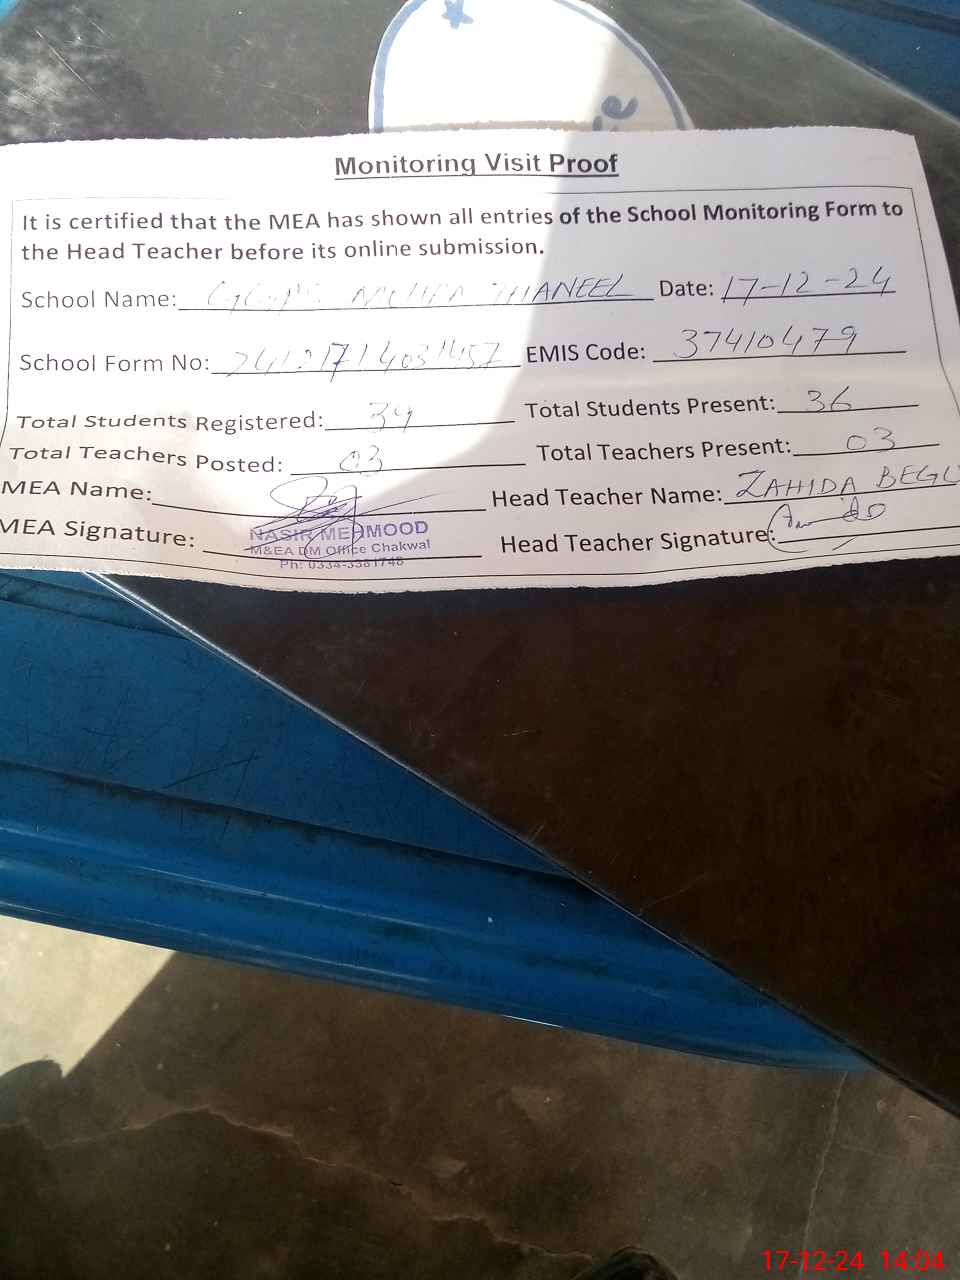 Monitoring Visit Proof
It is certified that the MEA has shown all entries of the School Monitoring Form to
the Head Teacher before its online submission.
School Name: THANEEL Date: 17-12-24
School Form No: EMIS Code: 37410479
Total Students Registered: Total Students Present: 36
Total Teachers Posted: 03 Total Teachers Present: 03
MEA Name: Head Teacher Name: ZAHIDA BEGU
MEA Signature: Head Teacher Signature:
NASIR MEHMOOD
M&EA DM Office Chakwal
17-12-24 14:04